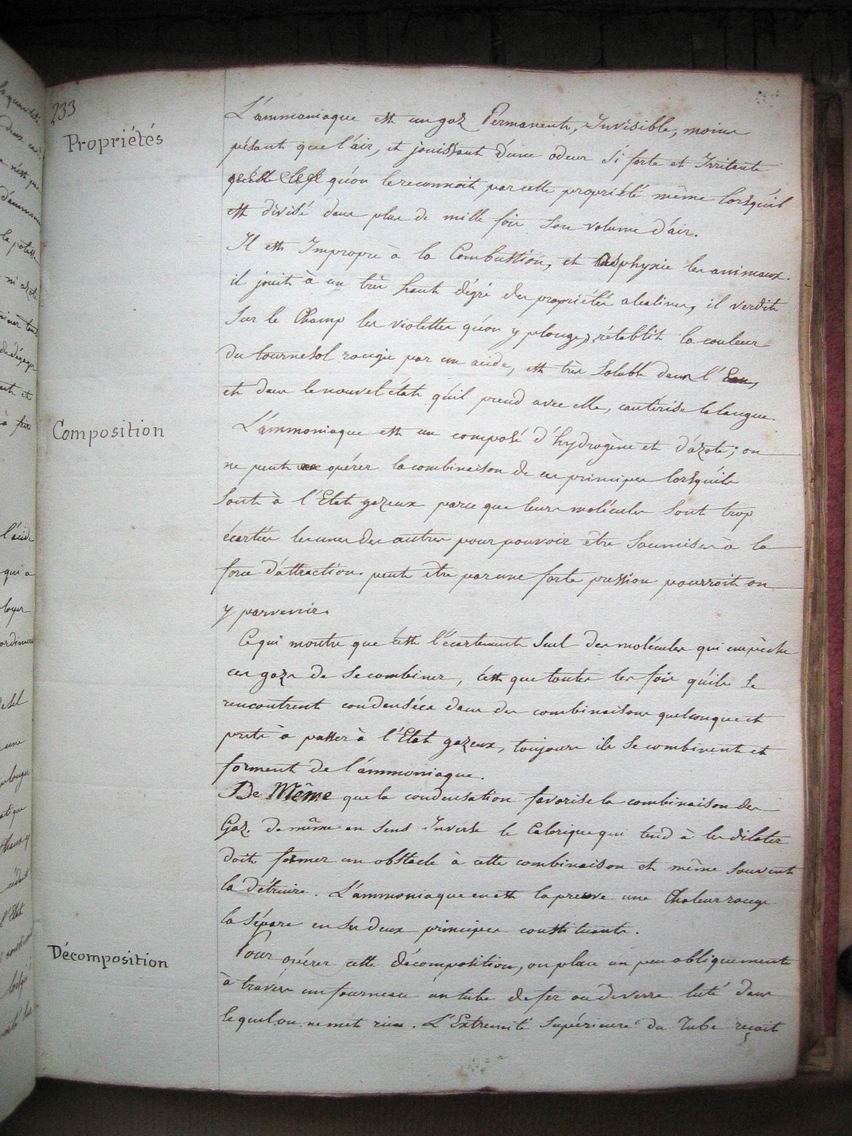 233
Propriétés
L'ammoniaque est un gaz Permanent, Invisible, moins
pésant que l'air, et jouissant d'une odeur si forte et Irritante
qu'on le reconnoit par cette propriété même lorsqu'il
est divisé dans plus de mille fois son volume d'air.
Il est Impropre à la Combustion, et asphyxie les animaux.
il jouit à un très haut dégré des propriétés alcalines, il verdit
sur le Champ les violettes qu'on y plonge, rétablit la couleur
du tournesol rougie par un acide, est très soluble dans l'Eau,
et dans le nouvel état qu'il prend avec elle, cautérise la langue.
Composition
L'ammoniaque est un composé d'hydrogène et d'azote; on
ne peut opérer la combinaison de ces principes lorsqu'ils
sont à l'Etat gazeux parce que leurs molécules sont trop
écartées les unes des autres pour pouvoir être soumises à la
force d'attraction. peut être par une forte pression pourroit on
y parvenir.
Ce qui montre que c'est l'écartement seul des molécules qui empêche
ces gaz de se combiner, c'est que toutes les fois qu'ils se
rencontrent condensées dans des combinaisons quelconque et
prets à passer à l'Etat gazeux, toujours ils se combinent et
forment de l'ammoniaque.
De Même que la condensation favorise la combinaison des
Gaz. de même en sens Inverse le Calorique qui tend à les dilater
doit former un obstacle à cette combinaison et même souvent
la détruire. L'ammoniaque en est la preuve une Chaleur rouge
la sépare en ses deux principes constituants.
Décomposition
Pour opérer cette décomposition, on place un peu obliquement
à travers un fourneau un tube de fer ou de verre luté dans
lequel on ne met rien. L'Extremité supérieure du Tube reçoit